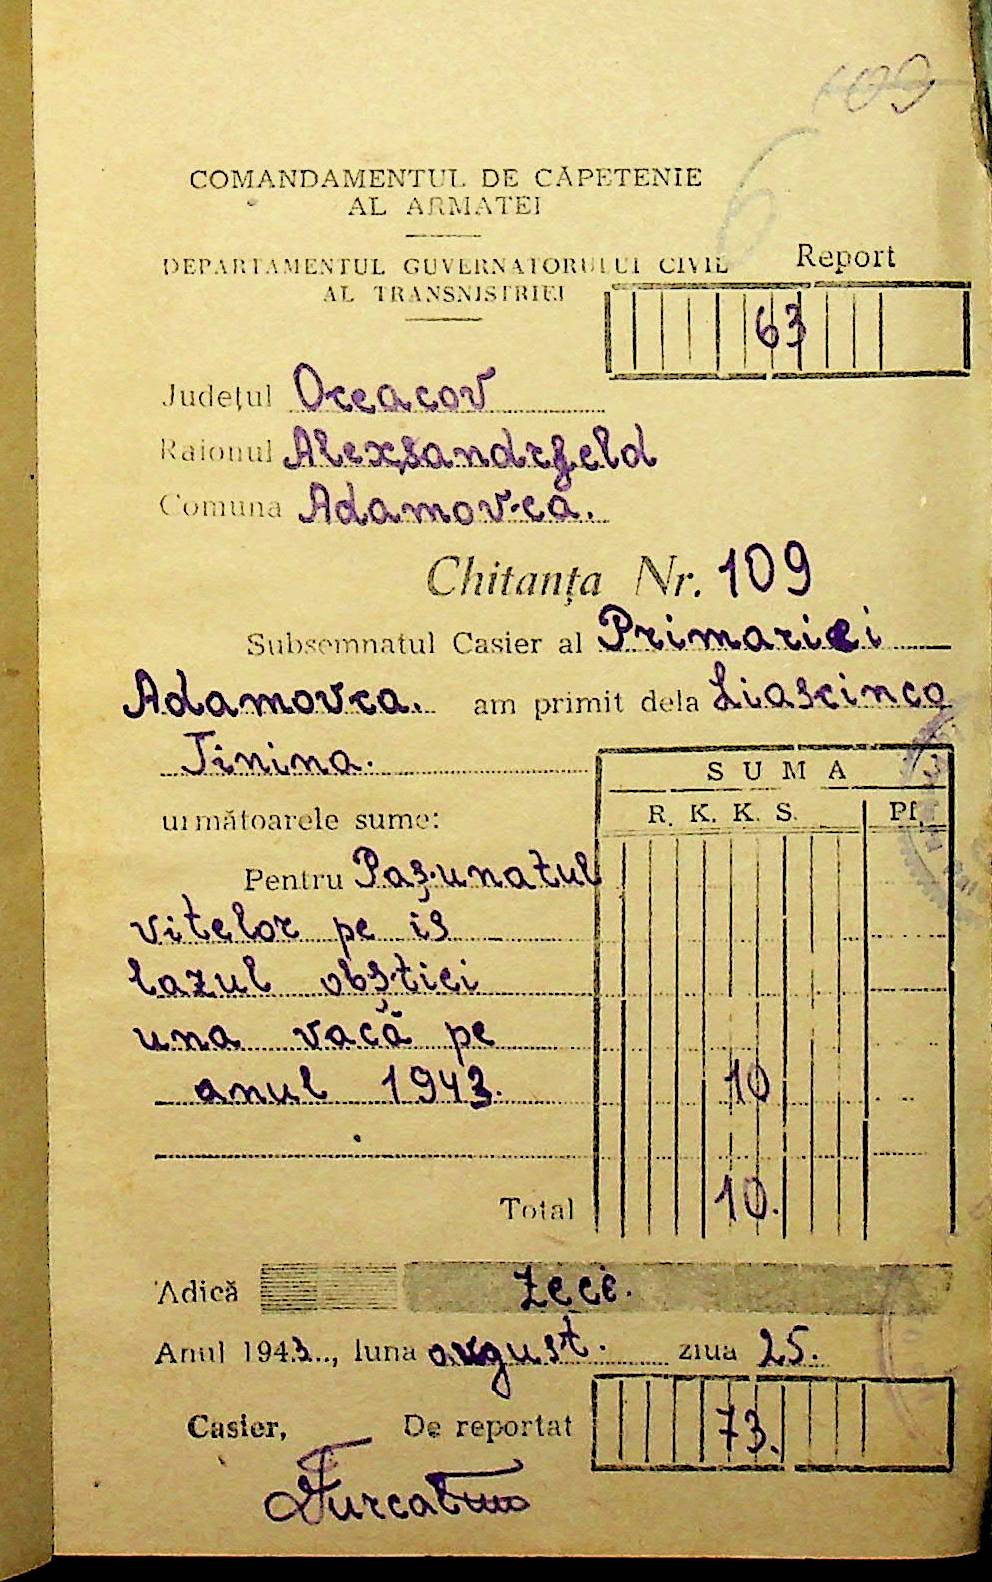 109
6
COMANDAMENTUL DE CĂPETENIE
AL ARMATEI
DEPARTAMENTUL GUVERNATORULUI CIVIL
AL TRANSNISTRIEI
Report
63
Județul Oceacov
Raionul Alexsandrfeld
Comuna Adamovca.
Chitanța Nr. 109
Subsemnatul Casier al Primariei
Adamovca. am primit dela Liascinco
Jinina.
SUMA
următoarele sume: R. K. K. S. Pf.
Pentru Pașunatul
vitelor pe is
lazul obștiei
una vacă pe
anul 1943. 10
Total 10.
Adică zece.
Anul 1943.., luna avgust. ziua 25.
Casier, De reportat 73.